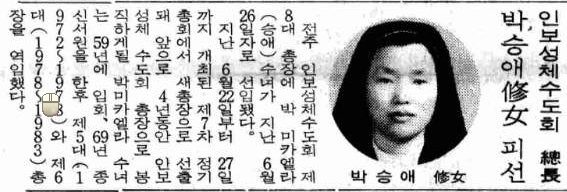 인보성체수도회 總長
박승애修女 피선
박승애 修女
전주 인보성체수도회 제
8대 총장에 박 미카엘라
(승애) 수녀가 지난 6월
26일자로 선임됐다.
지난 6월22일부터 27일
까지 개최된 제7차 정기
총회에서 새총장으로 선출
돼 앞으로 4년동안 인보
성체 수도회 총장으로 봉
직하게될 박미카엘라 수녀
는 59년에 입회, 69년 종
신서원을 한후 제5대(1
972~1978)와 제6
대(1978~1983) 총
장을 역임했다.